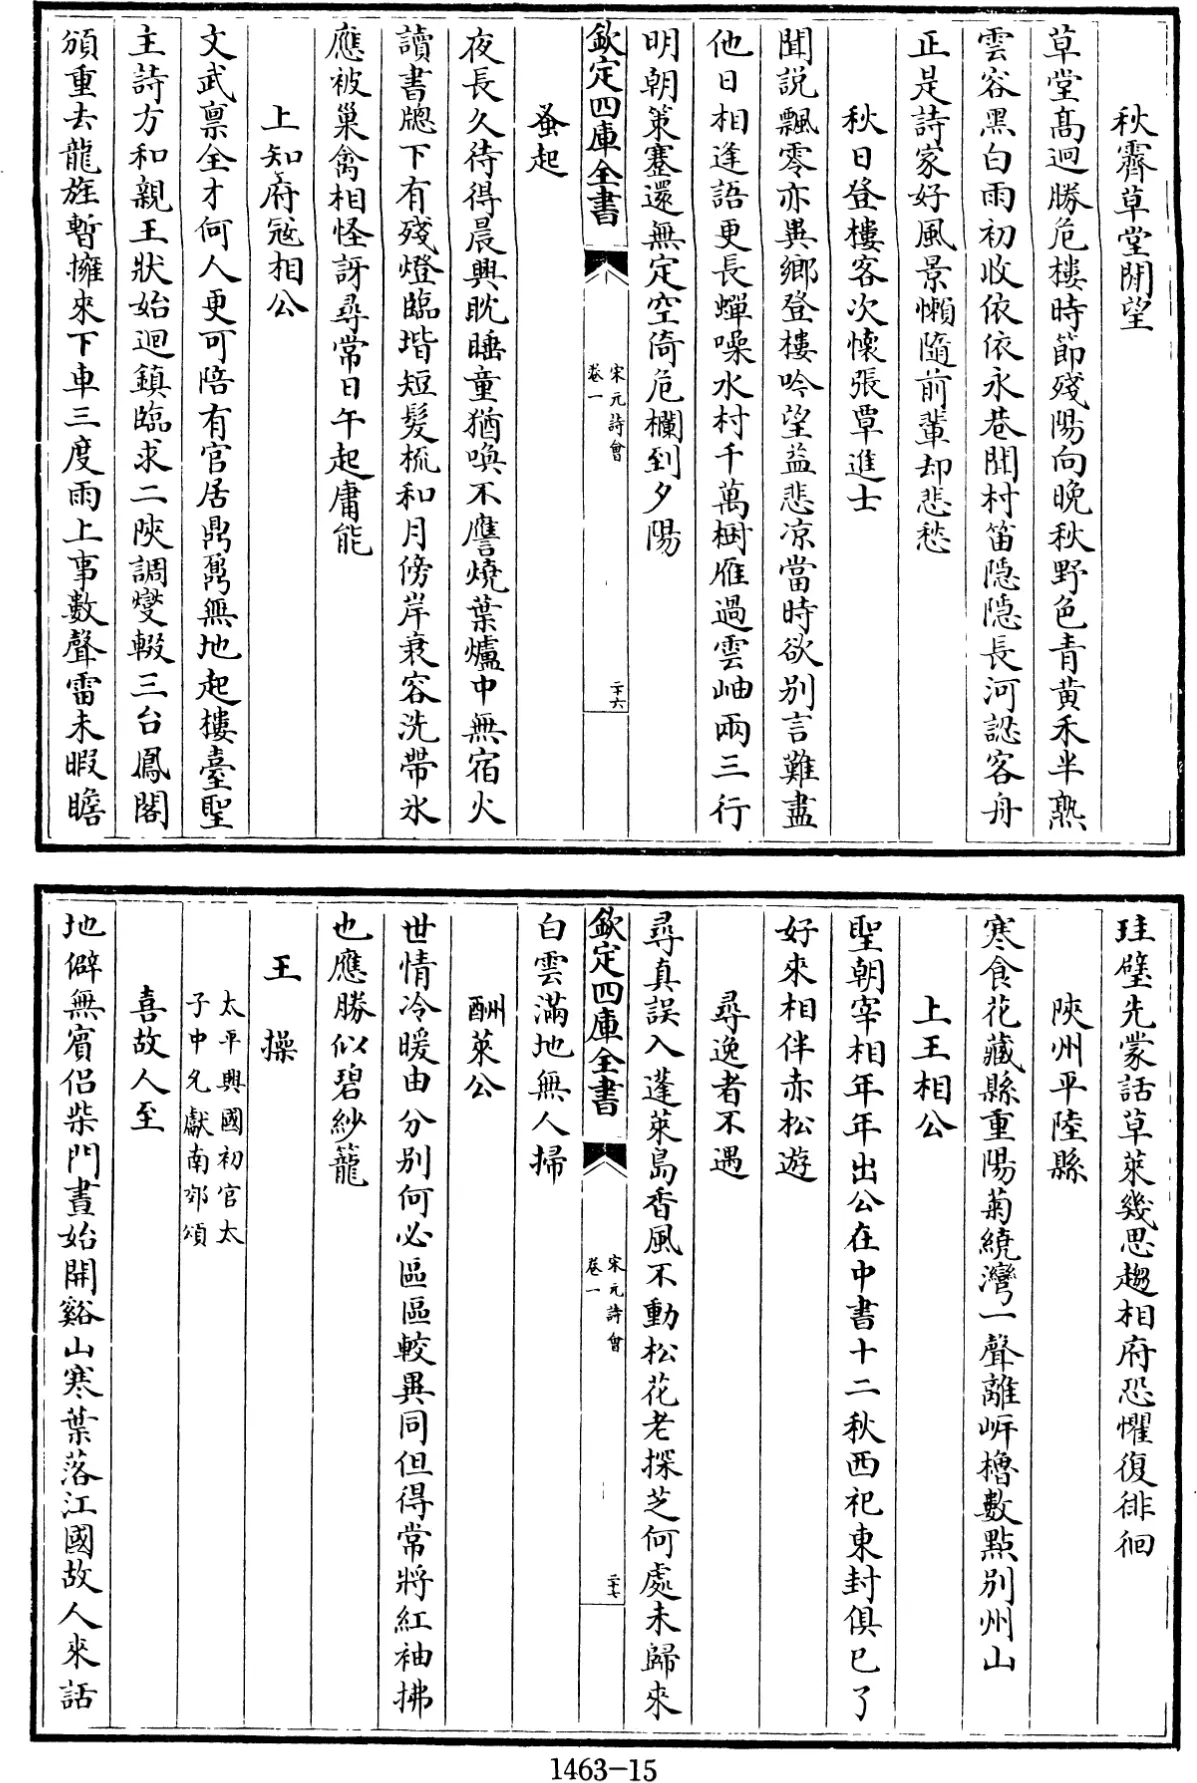 秋霽草堂閒望
草堂髙迥勝危樓時節殘陽向晚秋野色青黄禾半熟
雲容黑白雨初收依依永巷聞村笛隱隱長河認客舟
正是詩家好風景懶隨前輩却悲愁
秋日登樓客次懷張覃進士
聞説飄零亦異鄉登樓吟望益悲凉當時欲别言難盡
他日相逢語更長蟬噪水村千萬樹雁過雲岫兩三行
明朝策蹇還無定空倚危欄到夕陽
欽定四庫全書
宋元詩會
卷一
二十六
蚤起
夜長久待得晨興眈睡童猶喚不譍燒葉爐中無宿火
讀書牕下有殘燈臨堦短髮梳和月傍岸衰容洗帶氷
應被巢禽相怪訝尋常日午起庸能
上知府宼相公
文武禀全才何人更可陪有官居鼎鼐無地起樓臺聖
主詩方和親王狀始迴鎮臨求二陜調燮輟三台鳳閣
頒重去龍旌暫擁來下車三度雨上事數聲雷未暇瞻
珪璧先蒙話草萊幾思趨相府恐懼復徘徊
陜州平陸縣
寒食花藏縣重陽菊繞灣一聲離岸櫓數點别州山
上王相公
聖朝宰相年年出公在中書十二秋西祀東封俱已了
好來相伴赤松遊
尋逸者不遇
尋真誤入蓬萊島香風不動松花老採芝何處未歸來
欽定四庫全書
宋元詩會
卷一
二十七
白雲滿地無人掃
酬萊公
世情冷暖由分别何必區區較異同但得常將紅袖拂
也應勝似碧紗籠
王操
太平興國初官太
子中允獻南郊頌
喜故人至
地僻無賓侣柴門晝始開谿山寒葉落江國故人來話
1463-15